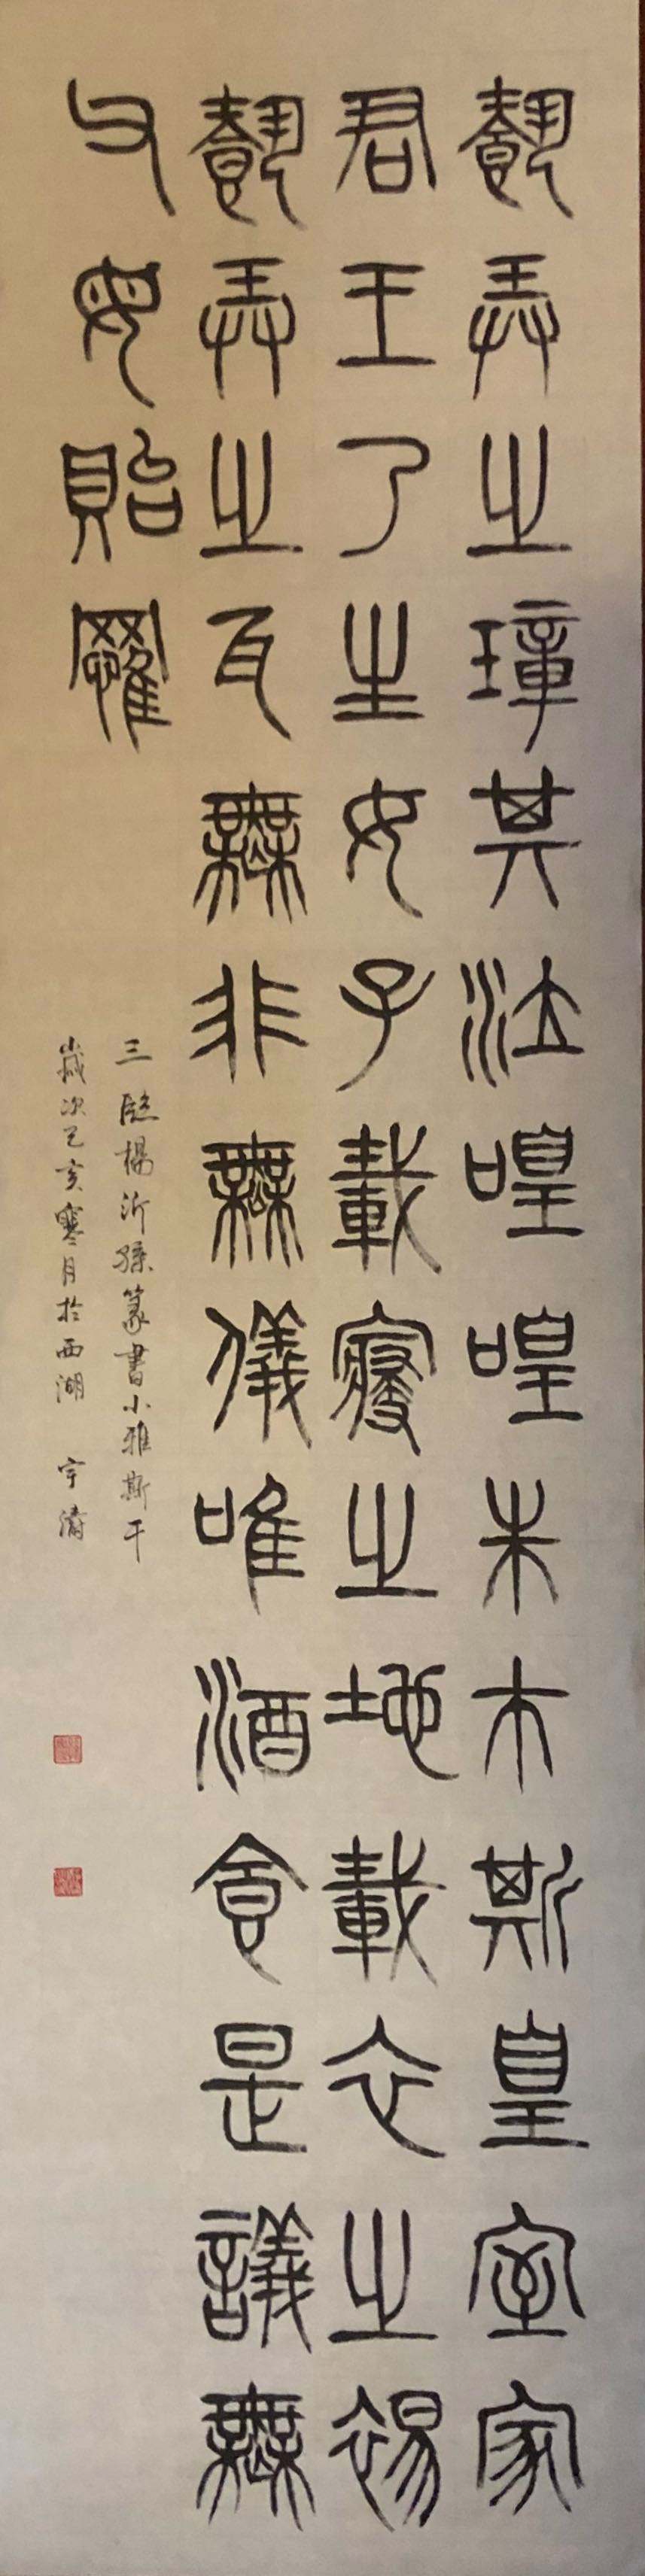 載弄之璋其泣喤喤朱巿斯皇室家
君王乃生女子載寢之地載衣之裼
載弄之瓦無非無儀唯酒食是議無
父母貽罹
三臨楊沂孫篆書小雅斯干
歲次己亥寒月於西湖 宇濤